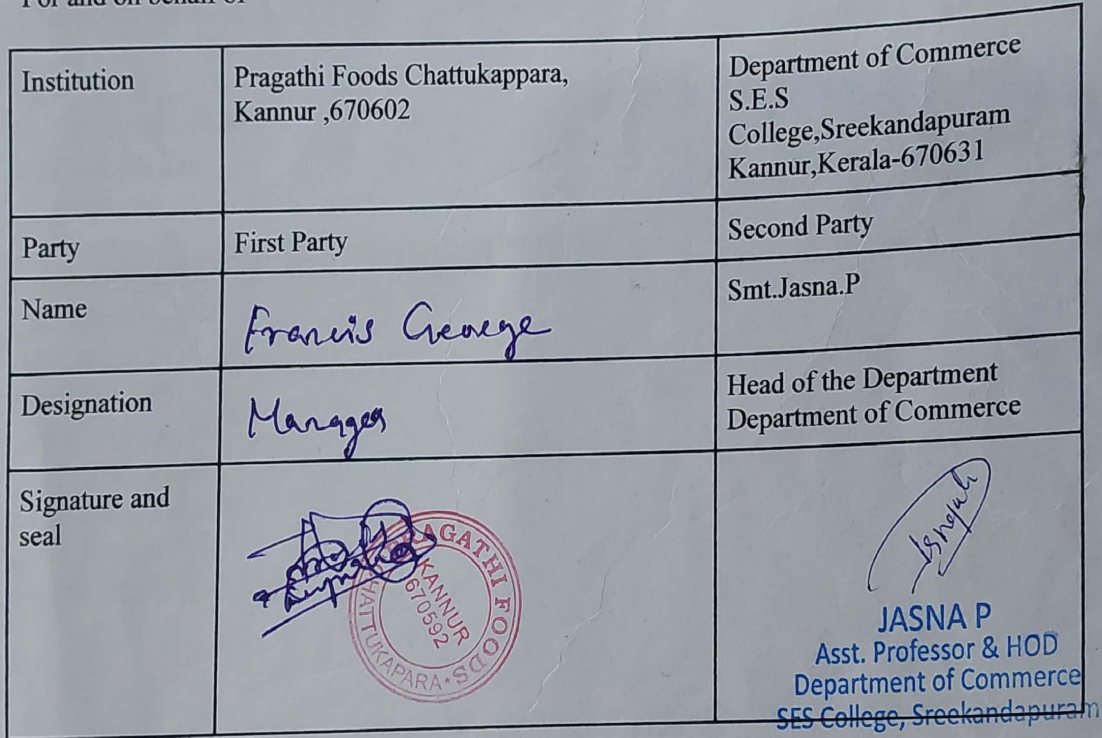 For and on behalf of
Institution
Pragathi Foods Chattukappara,
Kannur ,670602
Department of Commerce
S.E.S
College,Sreekandapuram
Kannur,Kerala-670631
Party
First Party
Second Party
Name
Francis George
Smt.Jasna.P
Designation
Manager
Head of the Department
Department of Commerce
Signature and
seal
PRAGATHI FOODS
KANNUR
670592
CHATTUKAPARA
JASNA P
Asst. Professor & HOD
Department of Commerce
SES College, Sreekandapuram